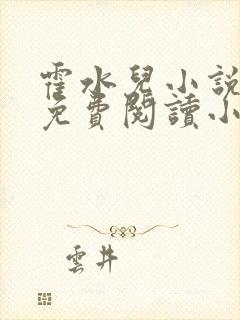 霍水兒小說
免費閱讀小
雲井